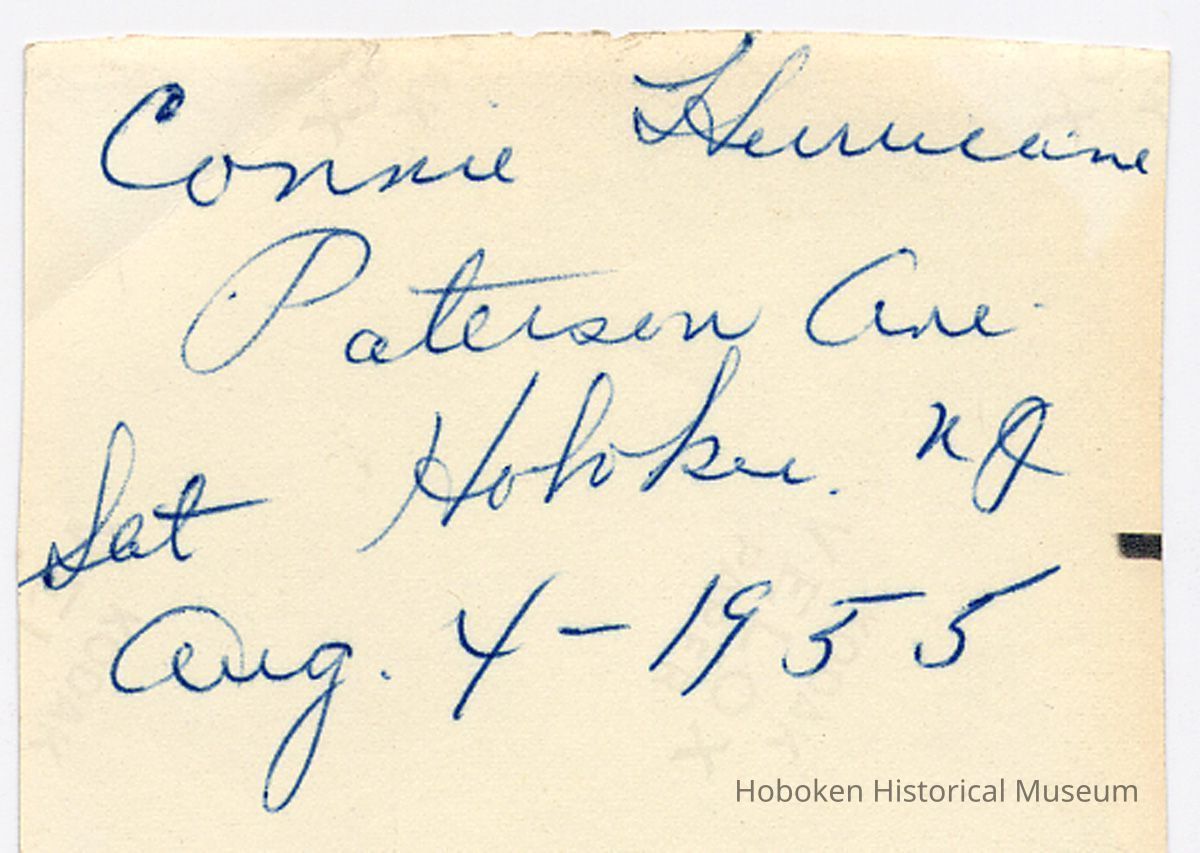 Connie Hurricane
Paterson Ave.
Hoboken. NJ
Sat
Aug. 4 - 1955
Hoboken Historical Museum